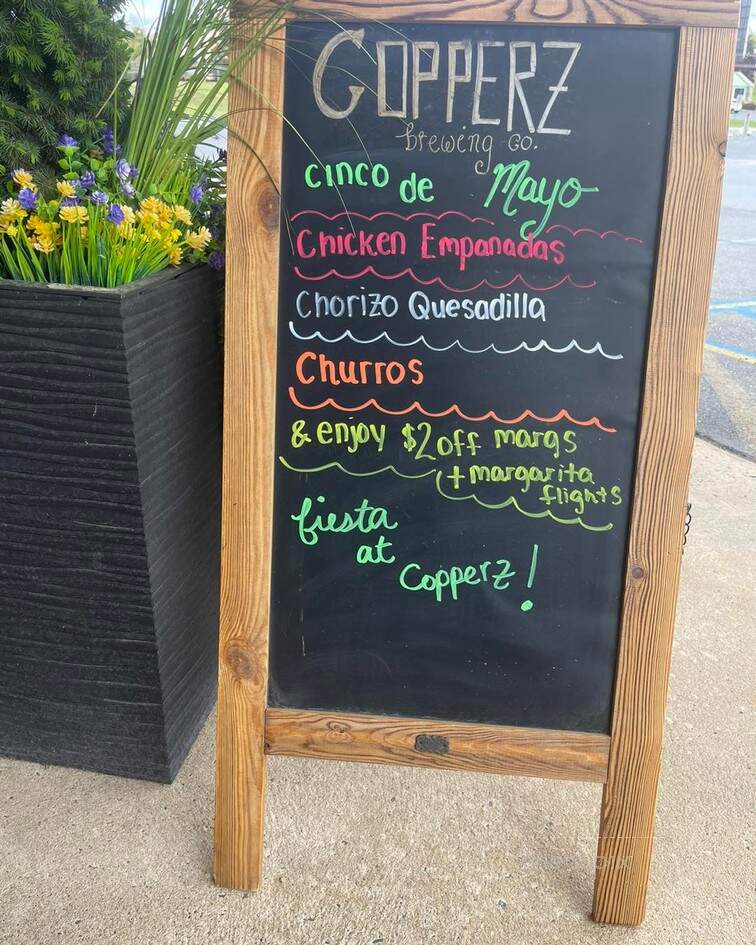 COPPERZ
brewing co.
cinco de Mayo
Chicken Empanadas
Chorizo Quesadilla
Churros
& enjoy $2 off margs
+ margarita
flights
fiesta
at
Copperz!